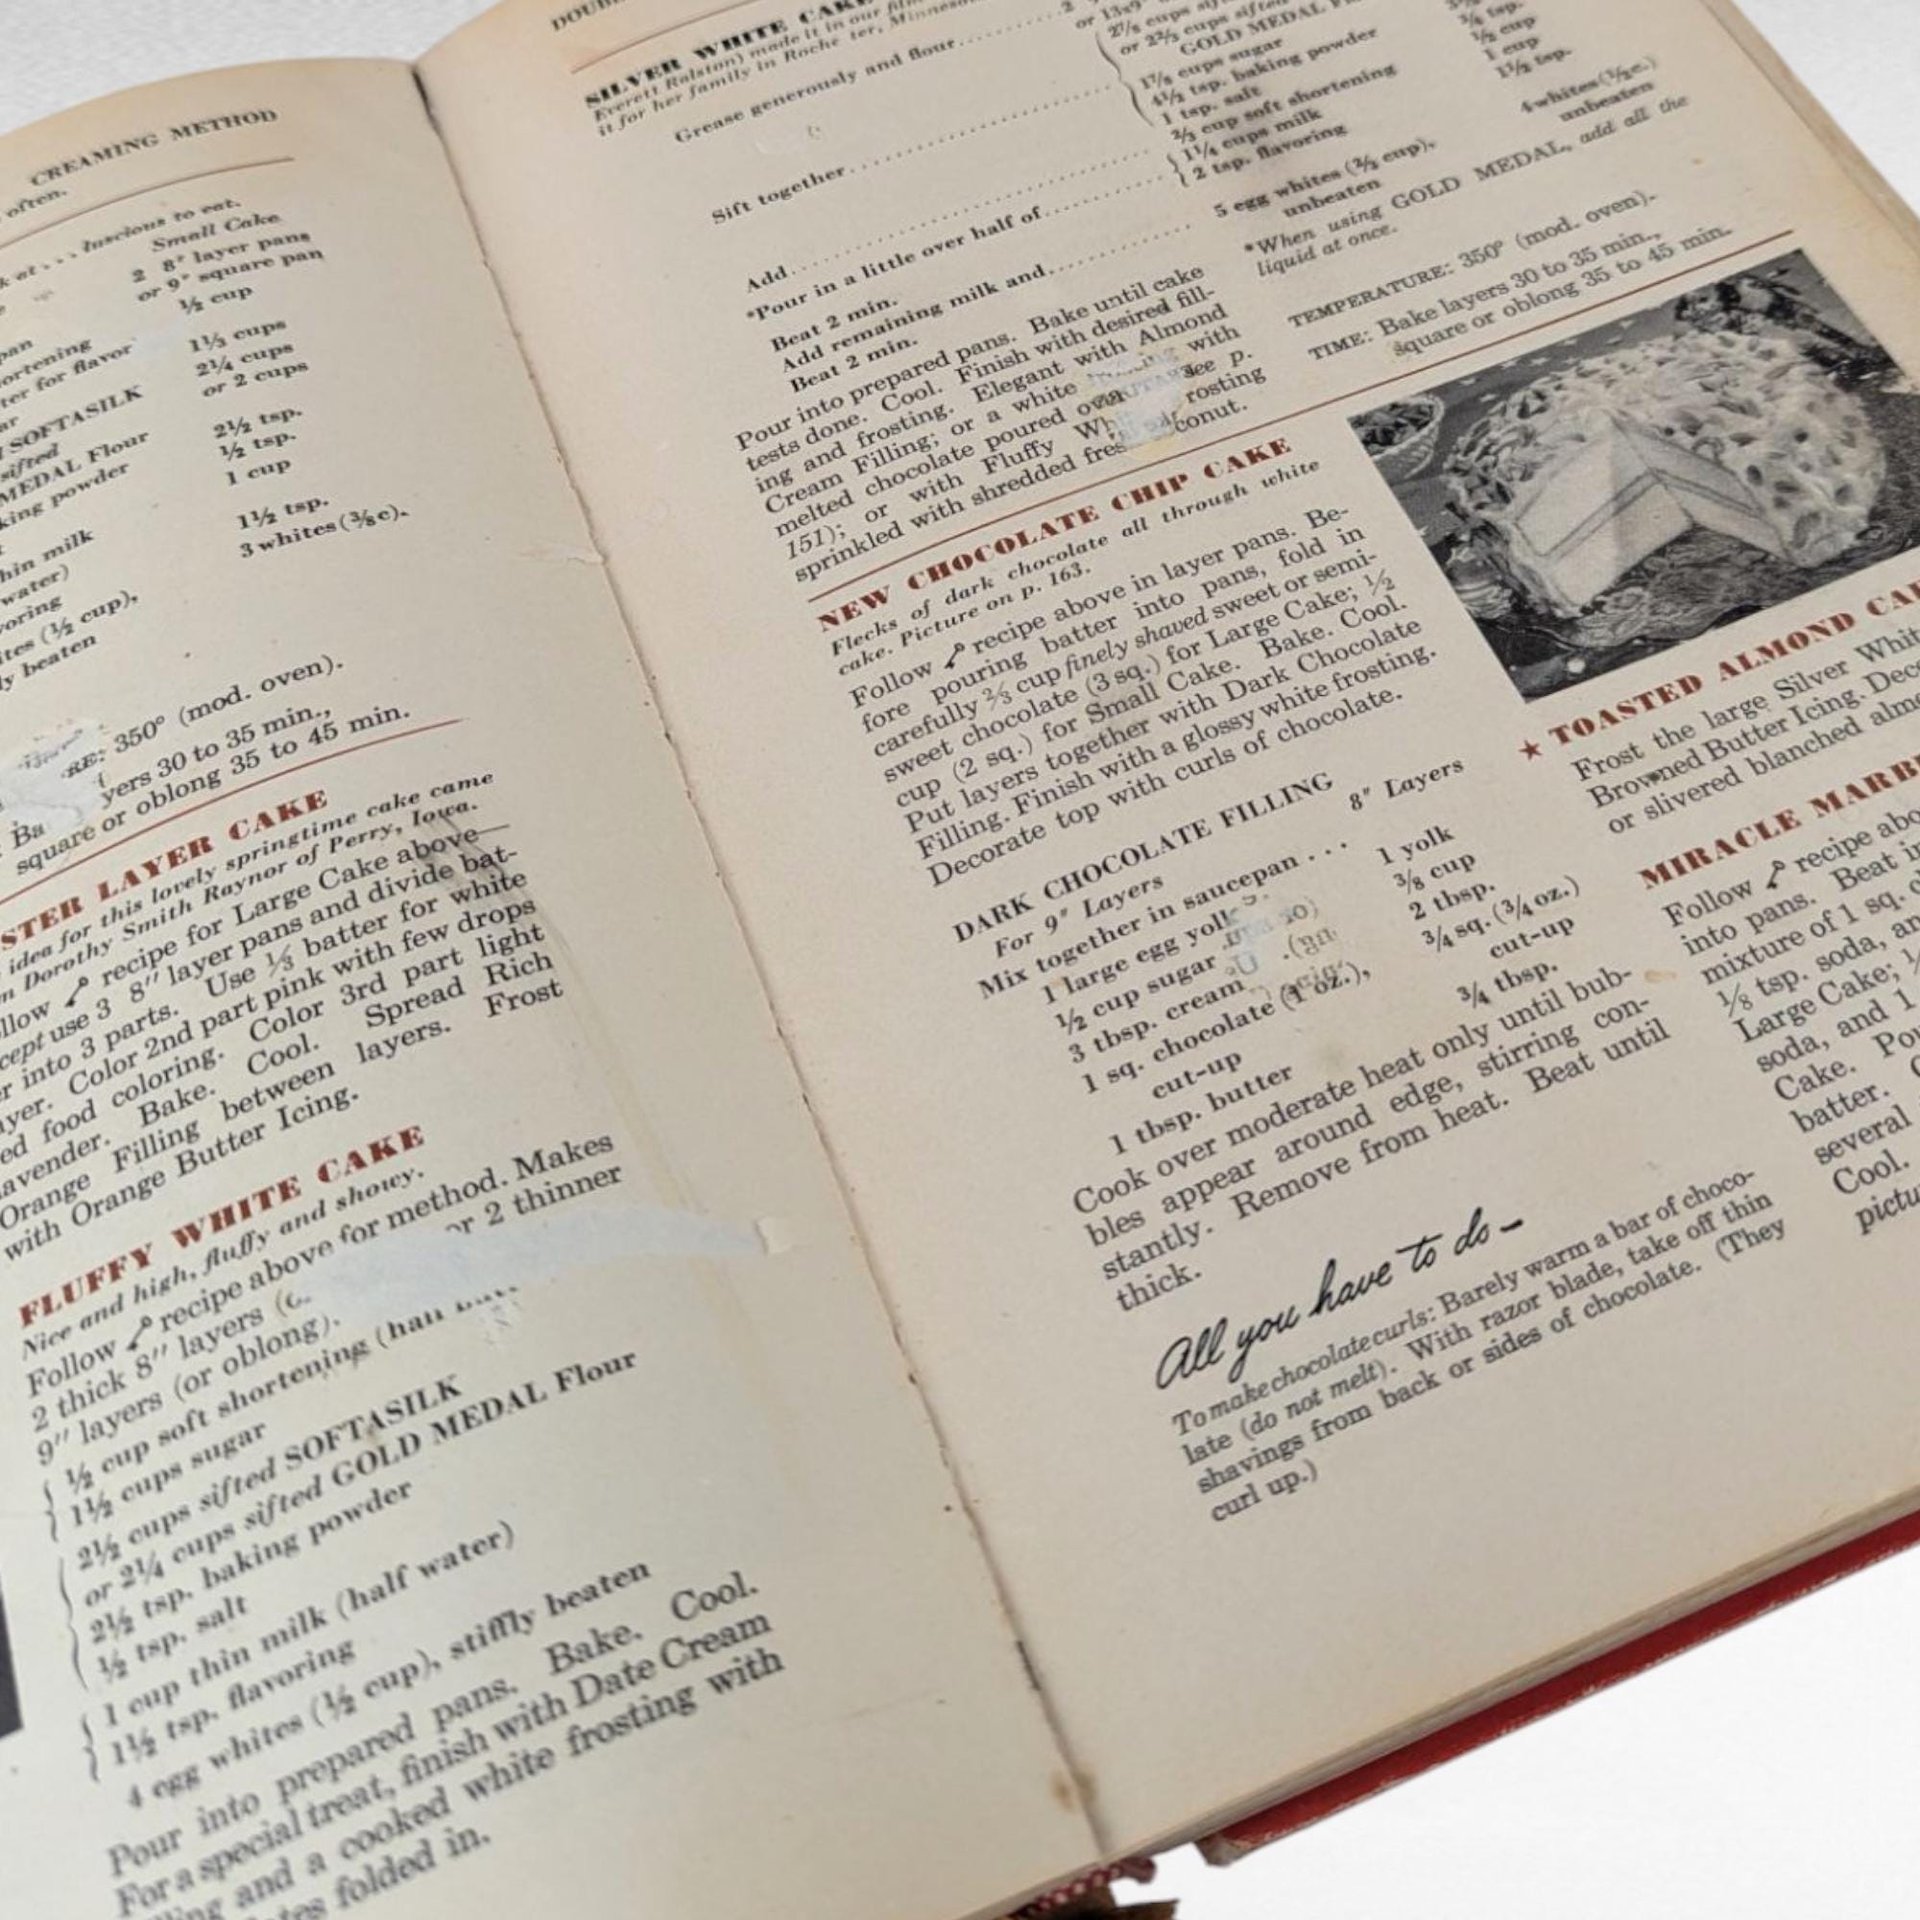 CREAMING METHOD
often.
luscious to eat.
Small Cake
2 8" layer pans
or 9" square pan
½ cup
pan
ortening
ter for flavor
1⅓ cups
ar
2¼ cups
SOFTASILK
or 2 cups
sifted
MEDAL Flour
2½ tsp.
king powder
½ tsp.
1 cup
hin milk
1½ tsp.
water)
3 whites (⅜ c).
voring
ites (½ cup),
ly beaten
RE: 350° (mod. oven).
Ba yers 30 to 35 min.,
square or oblong 35 to 45 min.
STER LAYER CAKE
idea for this lovely springtime cake came
m Dorothy Smith Raynor of Perry, Iowa.
llow recipe for Large Cake above—
cept use 3 8" layer pans and divide bat-
r into 3 parts. Use ⅓ batter for white
ayer. Color 2nd part pink with few drops
ed food coloring. Color 3rd part light
avender. Bake. Cool. Spread Rich
Orange Filling between layers. Frost
with Orange Butter Icing.
FLUFFY WHITE CAKE
Nice and high, fluffy and showy.
Follow recipe above for method. Makes
2 thick 8" layers (o or 2 thinner
9" layers (or oblong).
½ cup soft shortening (half
1½ cups sugar
2½ cups sifted SOFTASILK
or 2¼ cups sifted GOLD MEDAL Flour
2½ tsp. baking powder
½ tsp. salt
1 cup thin milk (half water)
1½ tsp. flavoring
4 egg whites (½ cup), stiffly beaten
Pour into prepared pans. Bake. Cool.
For a special treat, finish with Date Cream
lling and a cooked white frosting with
ates folded in.
DOUBL
SILVER WHITE CAKE
Everett Ralston) made it in our film
it for her family in Roche ter, Minnesota
Grease generously and flour
or 13x9"
2⅞ cups
or 2⅔ cups sifted
GOLD MEDAL
Sift together
1⅞ cups sugar
4½ tsp. baking powder
1 tsp. salt
¾ tsp.
⅔ cup soft shortening
⅓ cup
Add
1¼ cups milk
1 cup
*Pour in a little over half of
2 tsp. flavoring
1½ tsp.
Beat 2 min.
Add remaining milk and
5 egg whites (⅔ cup),
unbeaten
4 whites (½ c.)
unbeaten
Beat 2 min.
*When using GOLD MEDAL, add all the
liquid at once.
Pour into prepared pans. Bake until cake
tests done. Cool. Finish with desired fill-
ing and frosting. Elegant with Almond
Cream Filling; or a white with
melted chocolate poured over ee p.
151); or with Fluffy Wh rosting
sprinkled with shredded fres conut.
TEMPERATURE: 350° (mod. oven).
TIME: Bake layers 30 to 35 min.,
square or oblong 35 to 45 min.
NEW CHOCOLATE CHIP CAKE
Flecks of dark chocolate all through white
cake. Picture on p. 163.
Follow recipe above in layer pans. Be-
fore pouring batter into pans, fold in
carefully ⅔ cup finely shaved sweet or semi-
sweet chocolate (3 sq.) for Large Cake; ½
cup (2 sq.) for Small Cake. Bake. Cool.
Put layers together with Dark Chocolate
Filling. Finish with a glossy white frosting.
Decorate top with curls of chocolate.
DARK CHOCOLATE FILLING
For 9" Layers
8" Layers
Mix together in saucepan . . .
1 large egg yolk
1 yolk
½ cup sugar
⅜ cup
3 tbsp. cream
2 tbsp.
1 sq. chocolate (1 oz.),
¾ sq. (¾ oz.)
cut-up
cut-up
1 tbsp. butter
¾ tbsp.
Cook over moderate heat only until bub-
bles appear around edge, stirring con-
stantly. Remove from heat. Beat until
thick.
All you have to do—
To make chocolate curls: Barely warm a bar of choco-
late (do not melt). With razor blade, take off thin
shavings from back or sides of chocolate. (They
curl up.)
★ TOASTED ALMOND CA
Frost the large Silver Whit
Browned Butter Icing. Deco
or slivered blanched almo
MIRACLE MARB
Follow recipe abo
into pans. Beat in
mixture of 1 sq. c
⅛ tsp. soda, an
Large Cake;
soda, and 1
Cake. Pou
batter.
several
Cool.
pictu